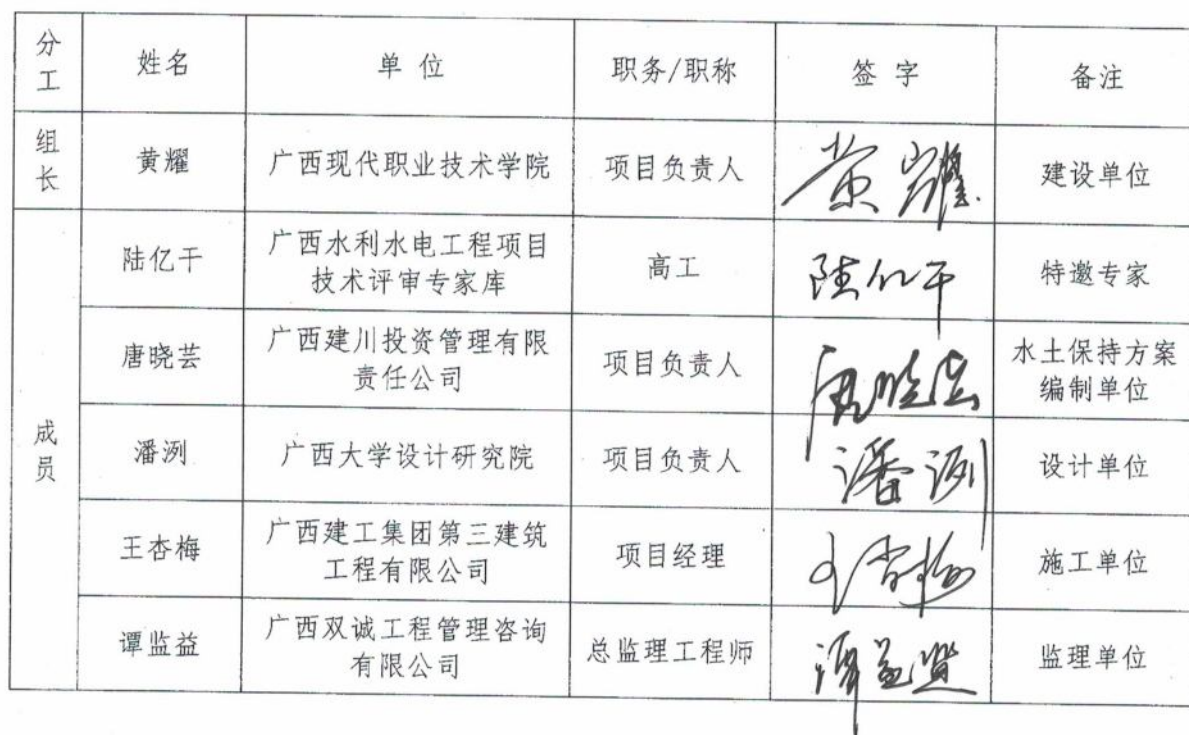 分工 姓名 单位 职务/职称 签字 备注
组长 黄耀 广西现代职业技术学院 项目负责人 黄耀 建设单位
成员
陆亿干 广西水利水电工程项目
技术评审专家库 高工 陆亿干 特邀专家
唐晓芸 广西建川投资管理有限
责任公司 项目负责人 唐晓芸 水土保持方案
编制单位
潘洌 广西大学设计研究院 项目负责人 潘洌 设计单位
王杏梅 广西建工集团第三建筑
工程有限公司 项目经理 王杏梅 施工单位
谭监益 广西双诚工程管理咨询
有限公司 总监理工程师 谭益监 监理单位